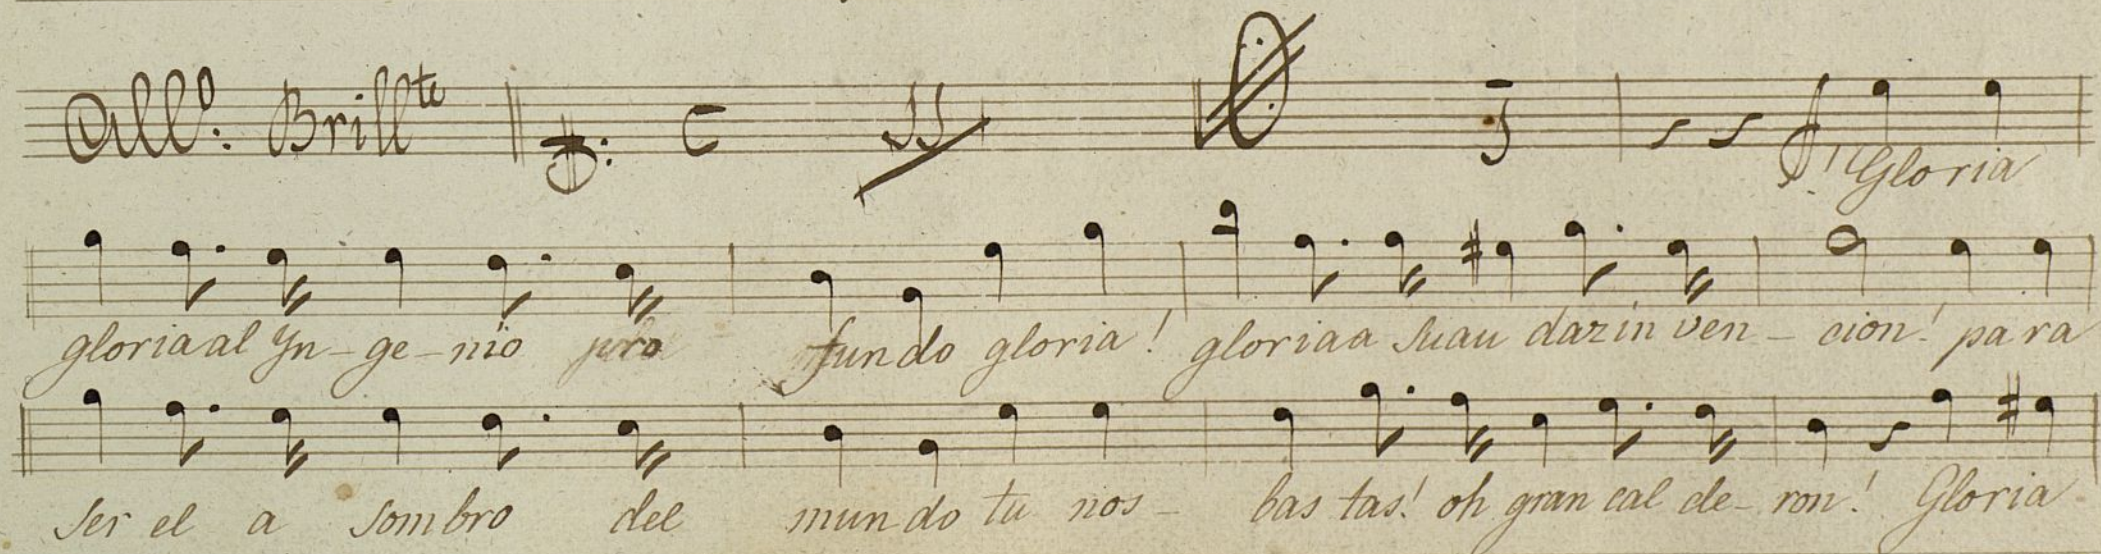 All.º Brill.te C 3 ! Gloria
gloria al Yn-ge-nio pro fun do gloria! gloria a su au daz in ven-cion! pa ra
ser el a sombro del mun do tu nos- bas tas! oh gran cal de-ron! Gloria